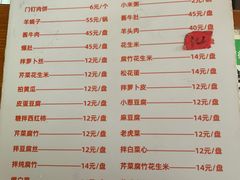 门钉肉饼 6元/个
羊蝎子 55元/锅
酱牛肉 45元/盘
爆肚
芹菜花生米 12元/盘
拍黄瓜 12元/盘
皮蛋豆腐 12元/盘
糖拌西红柿 12元/盘
芹菜腐竹 12元/盘
拌豆腐丝 12元/盘
拌纯腐竹 14元/盘
小米粥
酱牛肚
羊头肉
花生米
腐竹花生米 14元/盘
松花蛋 12元/盘
拌萝卜皮 12元/盘
小葱豆腐 12元/盘
麻豆腐 12元/盘
老虎菜 12元/盘
拌白菜心 12元/盘
芹菜腐竹花生米 14元/盘